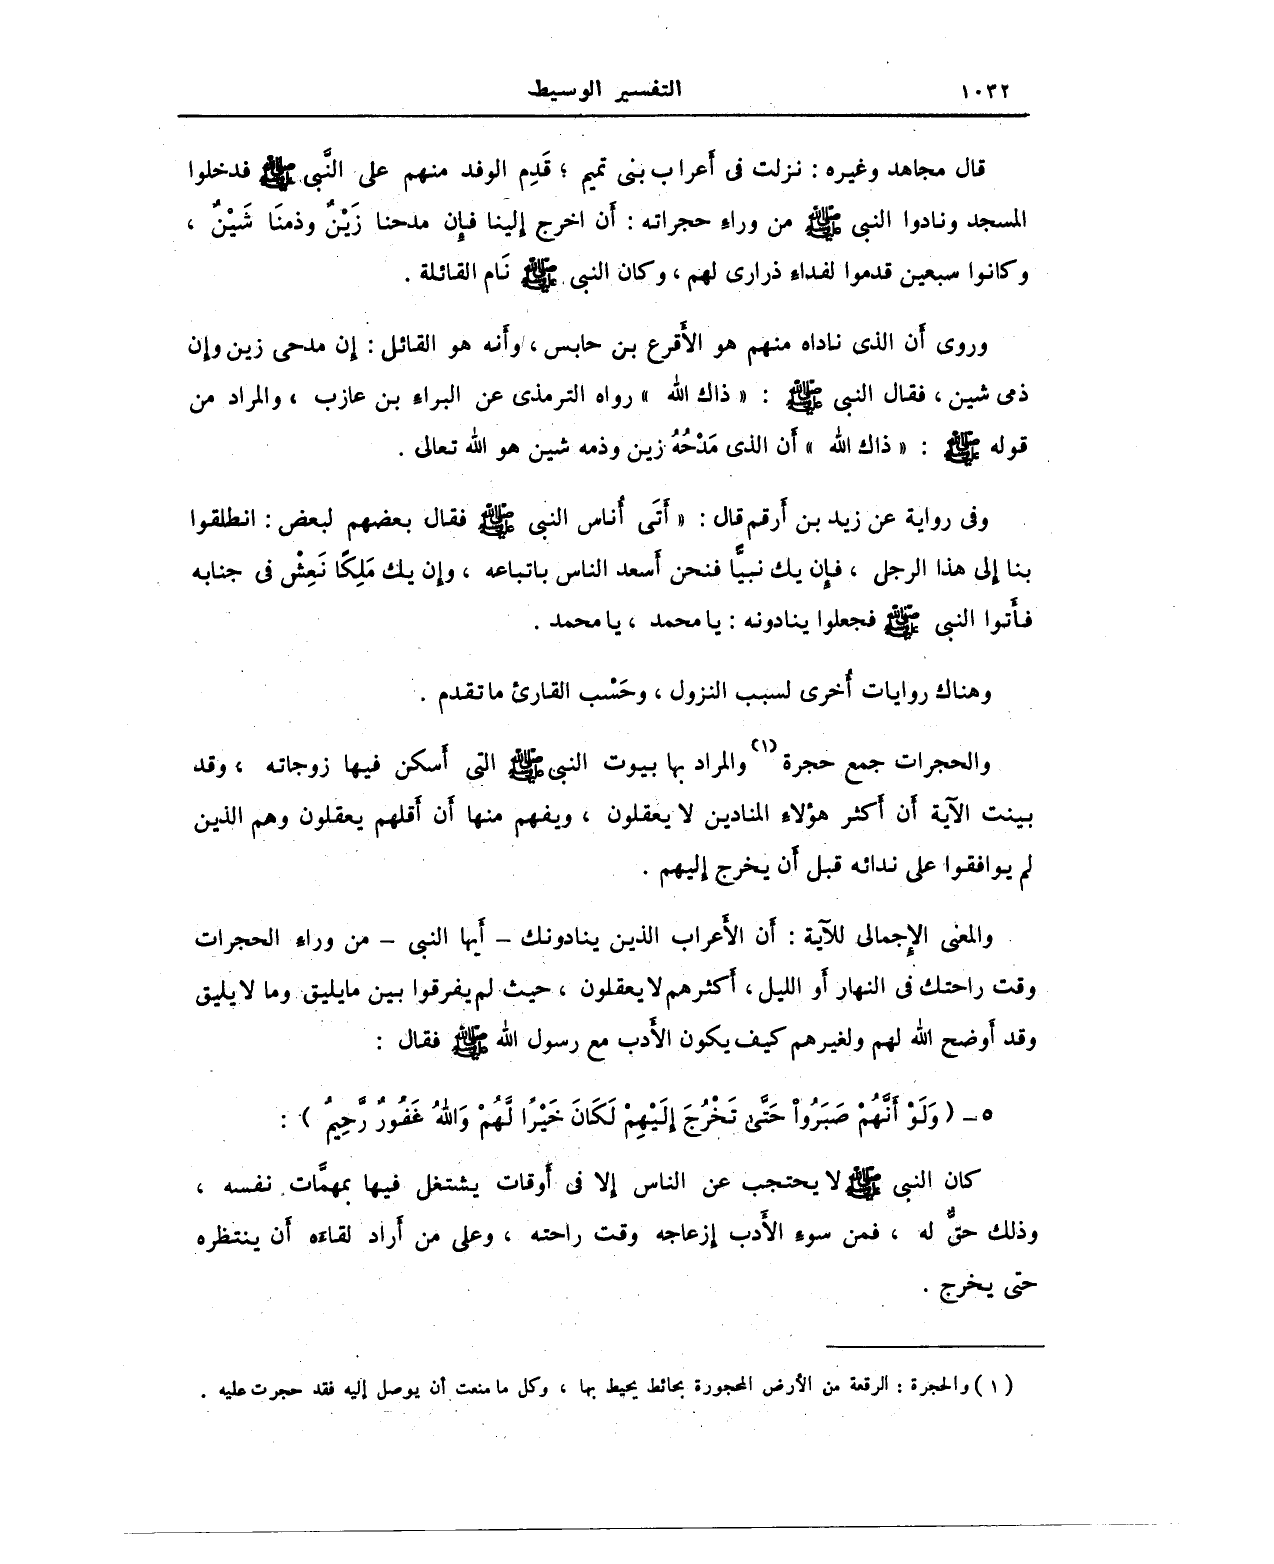 ١٠٣٢
التفسير الوسيط
قال مجاهد وغيره : نزلت فى أَعراب بنى تميم ؛ قَدِم الوفد منهم على النَّبى ﷺ فدخلوا
المسجد ونادوا النبى ﷺ من وراءِ حجراته : أَن اخرج إلينا فإِن مدحنا زَيْنٌ وذمنَا شَيْنٌ ،
وكانوا سبعين قدموا لفداءِ ذرارى لهم ، وكان النبى ﷺ نَام القائلة .
وروى أَن الذى ناداه منهم هو الأَقرع بن حابس ، وأَنه هو القائل : إن مدحى زين وإن
ذمى شين ، فقال النبى ﷺ : « ذاك الله » رواه الترمذى عن البراءِ بن عازب ، والمراد من
قوله ﷺ : « ذاك الله » أَن الذى مَدْحُهُ زين وذمه شين هو الله تعالى .
وفى رواية عن زيد بن أَرقم قال : « أَتَى أُناس النبى ﷺ فقال بعضهم لبعض : انطلقوا
بنا إلى هذا الرجل ، فإِن يك نبيًّا فنحن أَسعد الناس باتباعه ، وإن يك مَلِكًا نَعِشْ فى جنابه
فأَتوا النبى ﷺ فجعلوا ينادونه : يا محمد ، يا محمد .
وهناك روايات أُخرى لسبب النزول ، وحَسْب القارئ ما تقدم .
والحجرات جمع حجرة (١) والمراد بها بيوت النبى ﷺ التى أَسكن فيها زوجاته ، وقد
بينت الآية أَن أَكثر هؤلاء المنادين لا يعقلون ، ويفهم منها أَن أَقلهم يعقلون وهم الذين
لم يوافقوا على ندائه قبل أَن يخرج إليهم .
والمعنى الإِجمالى للآية : أَن الأَعراب الذين ينادونك – أَيها النبى – من وراءِ الحجرات
وقت راحتك فى النهار أَو الليل ، أَكثرهم لا يعقلون ، حيث لم يفرقوا بين مايليق وما لا يليق
وقد أَوضح الله لهم ولغيرهم كيف يكون الأَدب مع رسول الله ﷺ فقال :
٥ – ( وَلَوْ أَنَّهُمْ صَبَرُواْ حَتَّىٰ تَخْرُجَ إِلَيْهِمْ لَكَانَ خَيْرًا لَّهُمْ وَاللهُ غَفُورٌ رَّحِيمٌ ) :
كان النبى ﷺ لا يحتجب عن الناس إلا فى أَوقات يشتغل فيها بمهمَّات نفسه ،
وذلك حقٌّ له ، فمن سوءِ الأَدب إزعاجه وقت راحته ، وعلى من أَراد لقاءَه أَن ينتظره
حتى يخرج .
( ١ ) والحجرة : الرقعة من الأرض المحجورة بحائط يحيط بها ، وكل ما منعت أن يوصل إليه فقد حجرت عليه .